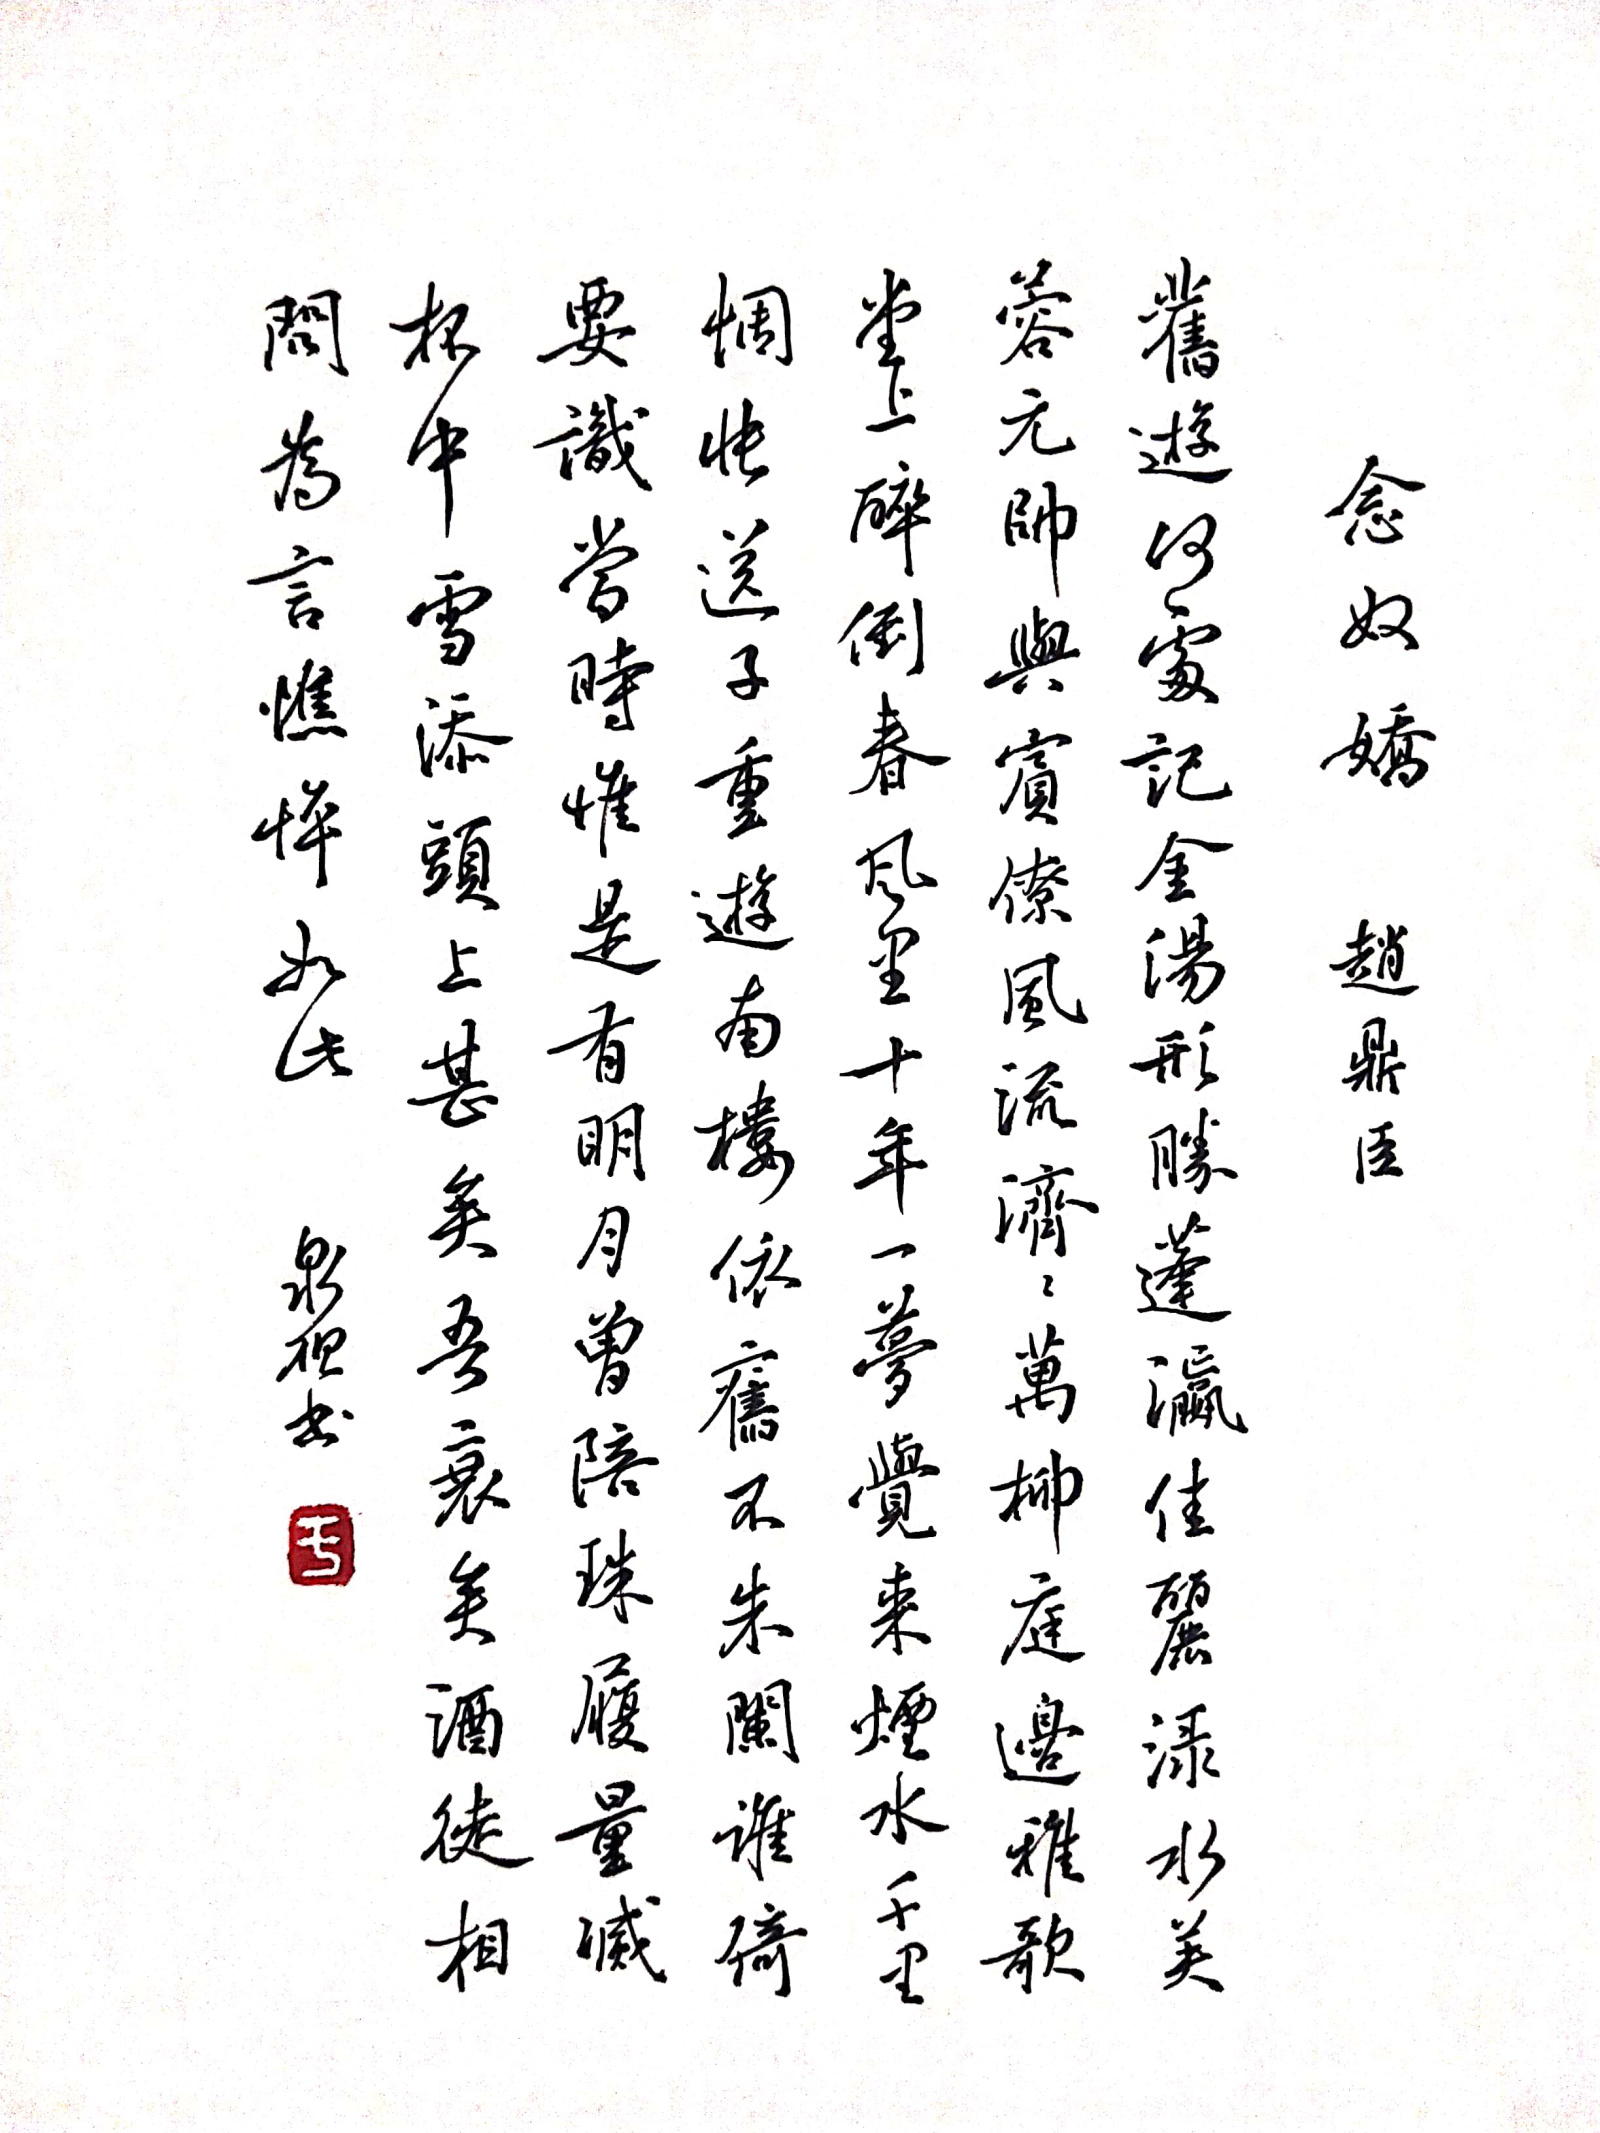 念奴嬌 趙鼎臣
舊遊何處記金湯形勝蓬瀛佳麗渌水芙
蓉元帥與賓僚風流濟〻萬柳庭邊雅歌
堂上醉倒春风里十年一夢覺来煙水千里
惆悵送子重遊南樓依舊不朱闌誰倚
要識當時惟是有明月曾陪珠履量減
杯中雪添頭上甚矣吾衰矣酒徒相
問為言憔悴如此 泉硯书